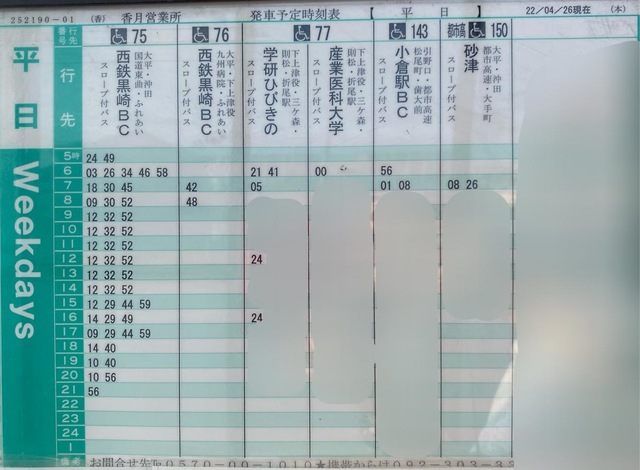 252190-01 (香) 香月営業所 発車予定時刻表 【 平 日 】 22/04/26現在 (木)
平日 Weekdays
行先番号 75 76 77 143 都市高 150
行先
大平・沖田
国道東曲・ふれあい
西鉄黒崎BC
スロープ付バス
大平・下上津役
九州病院・ふれあい
西鉄黒崎BC
スロープ付バス
下上津役・三ケ森・
則松・折尾駅
学研ひびきの
スロープ付バス
下上津役・三ケ森・
則松・折尾駅
産業医科大学
スロープ付バス
引野口・都市高速
松尾町・歯大前
小倉駅BC
スロープ付バス
大平・沖田
都市高速・大手町
砂津
スロープ付バス
5時 24 49
6 03 26 34 46 58 21 41 00 56
7 18 30 45 42 05 01 08 08 26
8 09 30 52 48
9 12 32 52
10 12 32 52
11 12 32 52
12 12 32 52 24
13 12 32 52
14 12 32 52
15 12 29 44 59
16 14 29 49 24
17 09 29 44 59
18 14 40
19 10 40
20 10 56
21 56
22
23
24
1
備考 お問合せ先℡0570-00-1010★携帯からは092-303-33